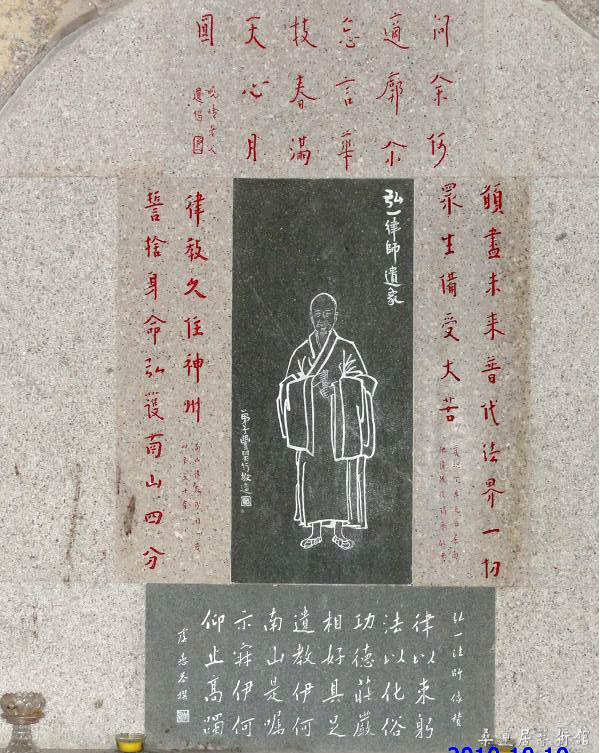 問余何
適廓尒
忘言華
枝春滿
天心月
圓
晚晴老人
遺偈
願盡未来普代法界一切
眾生備受大苦
弘一律師遺象
弟子豐嬰行敬造
律教久住神州
誓捨身命弘護南山四分
弘一法師像贊
律以束躬
法以化俗
功德莊嚴
相好具足
遺教伊何
南山是囑
示寂伊何
仰止高躅
虞愚恭撰
桑蓮居藝術館
2010 10 10